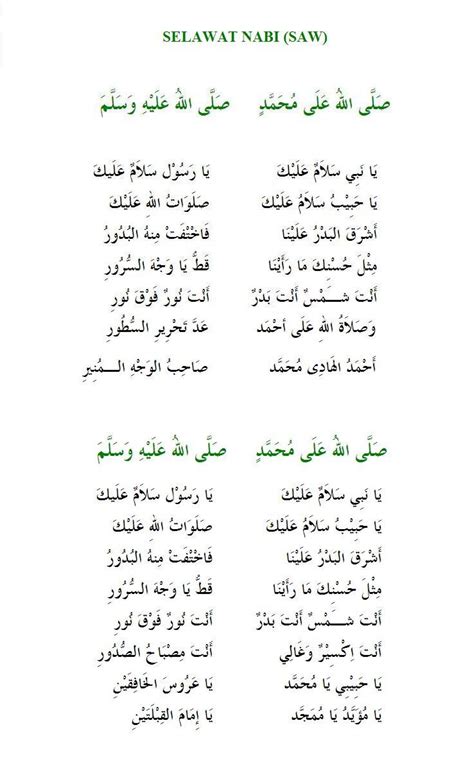 SELAWAT NABI (SAW)
صَلَّى اللهُ عَلَى مُحَمَّدٍ صَلَّى اللهُ عَلَيْهِ وَسَلَّمَ
يَا نَبِي سَلَامٌ عَلَيْكَ يَا رَسُوْل سَلَامٌ عَلَيكَ
يَا حَبِيْبُ سَلَامُ عَلَيْكَ صَلَوَاتُ اللهِ عَلَيْكَ
أَشْرَقَ البَدْرُ عَلَيْنَا فَاخْتَفَتْ مِنهُ البُدُورُ
مِثْلَ حُسْنِكَ مَا رَأَيْنَا قَطُّ يَا وَجْهَ السُّرُورِ
أَنْتَ شَـــمْسٌ أَنْتَ بَدْرٌ أَنْتَ نُورٌ فَوْقَ نُورِ
وَصَلَاةُ اللهِ عَلَى أحْمَد عَدَّ تَحْرِيرِ السُّطُورِ
أَحْمَدُ الهَادِى مُحَمَّد صَاحِبُ الوَجْهِ الـــمُنِيرِ
صَلَّى اللهُ عَلَى مُحَمَّدٍ صَلَّى اللهُ عَلَيْهِ وَسَلَّمَ
يَا نَبِي سَلَامٌ عَلَيْكَ يَا رَسُوْل سَلَامٌ عَلَيكَ
يَا حَبِيْبُ سَلَامُ عَلَيْكَ صَلَوَاتُ اللهِ عَلَيْكَ
أَشْرَقَ البَدْرُ عَلَيْنَا فَاخْتَفَتْ مِنهُ البُدُورُ
مِثْلَ حُسْنِكَ مَا رَأَيْنَا قَطُّ يَا وَجْهَ السُّرُورِ
أَنْتَ شَـــمْسٌ أَنْتَ بَدْرٌ أَنْتَ نُورٌ فَوْقَ نُورِ
أَنْتَ اِكْسِيْرٌ وَغَالِي أَنْتَ مِصْبَاحُ الصُّدُورِ
يَا حَبِيْبِي يَا مُحَمَّد يَا عَرُوسَ الخَافِقَيْنِ
يَا مُؤَيَّدُ يَا مُمَجَّد يَا إِمَامَ القِبْلَتَيْنِ